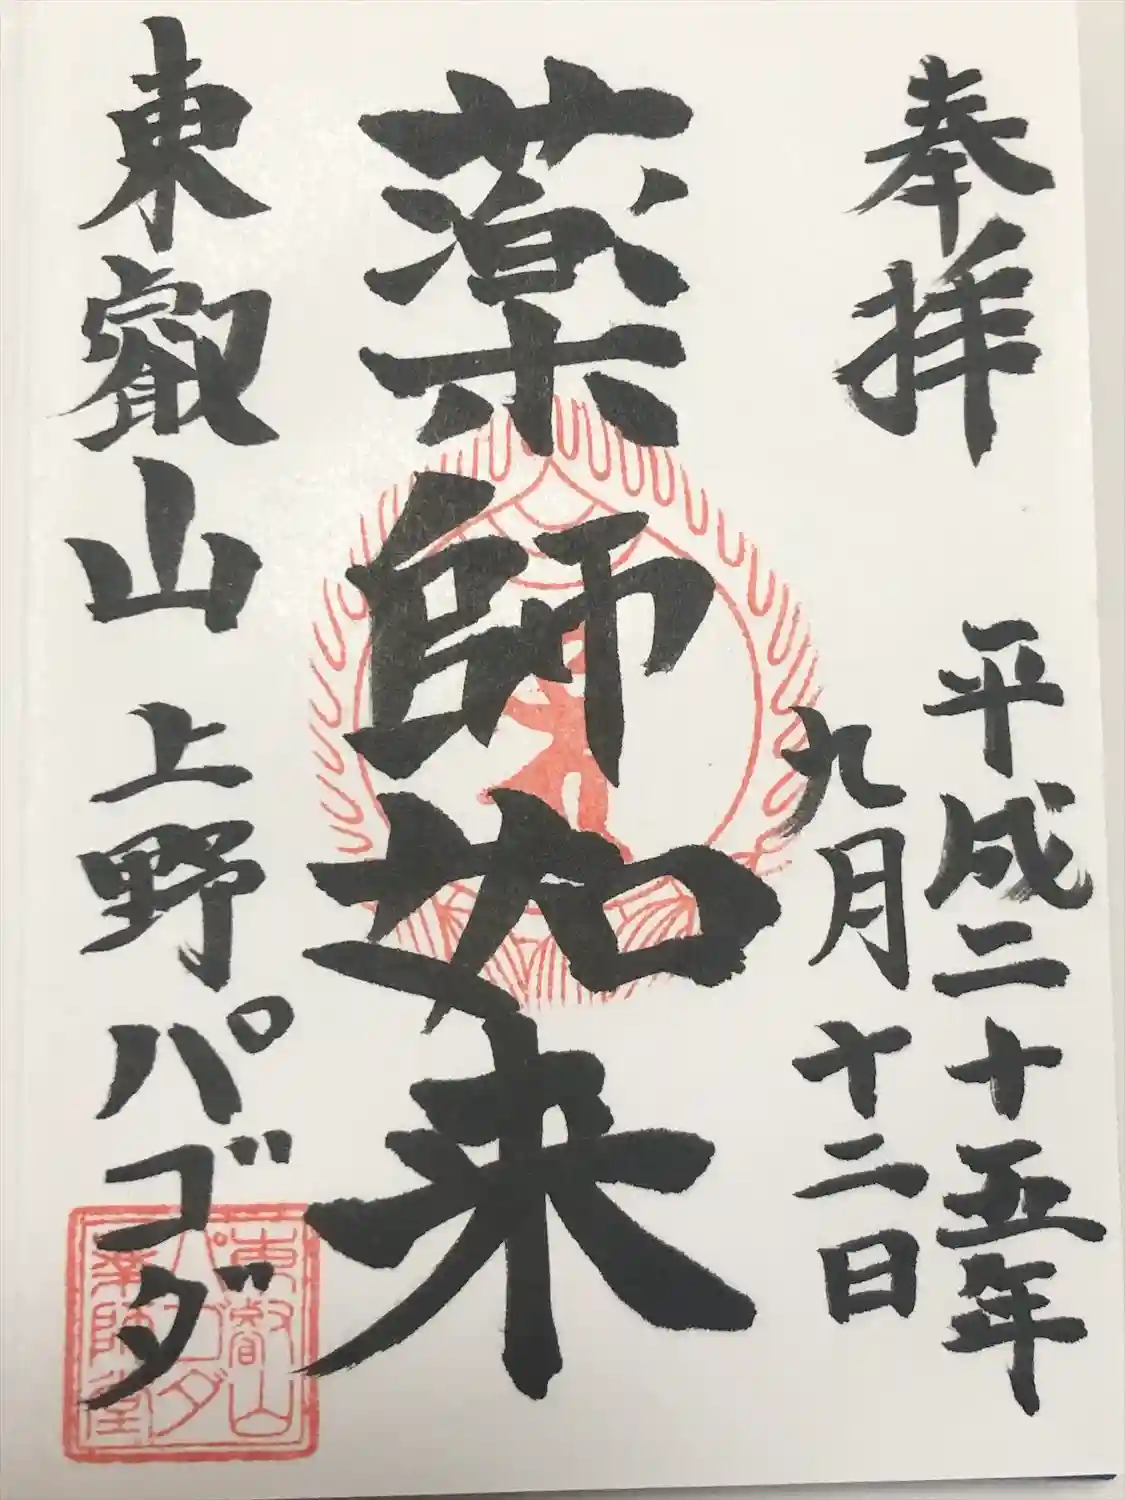 奉拝
平成二十五年
九月十二日
薬師如来
東叡山 上野パゴダ
東叡山
パゴダ
薬師堂